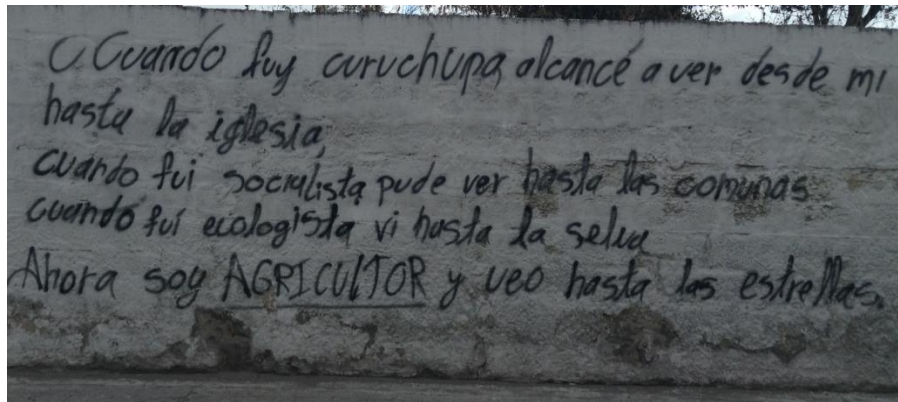 Cuando fuy curuchupa, alcancé a ver desde mi
hasta la iglesia,
cuando fui socialista, pude ver hasta las comunas
cuando fui ecologista vi hasta la selva
Ahora soy AGRICULTOR y veo hasta las estrellas.